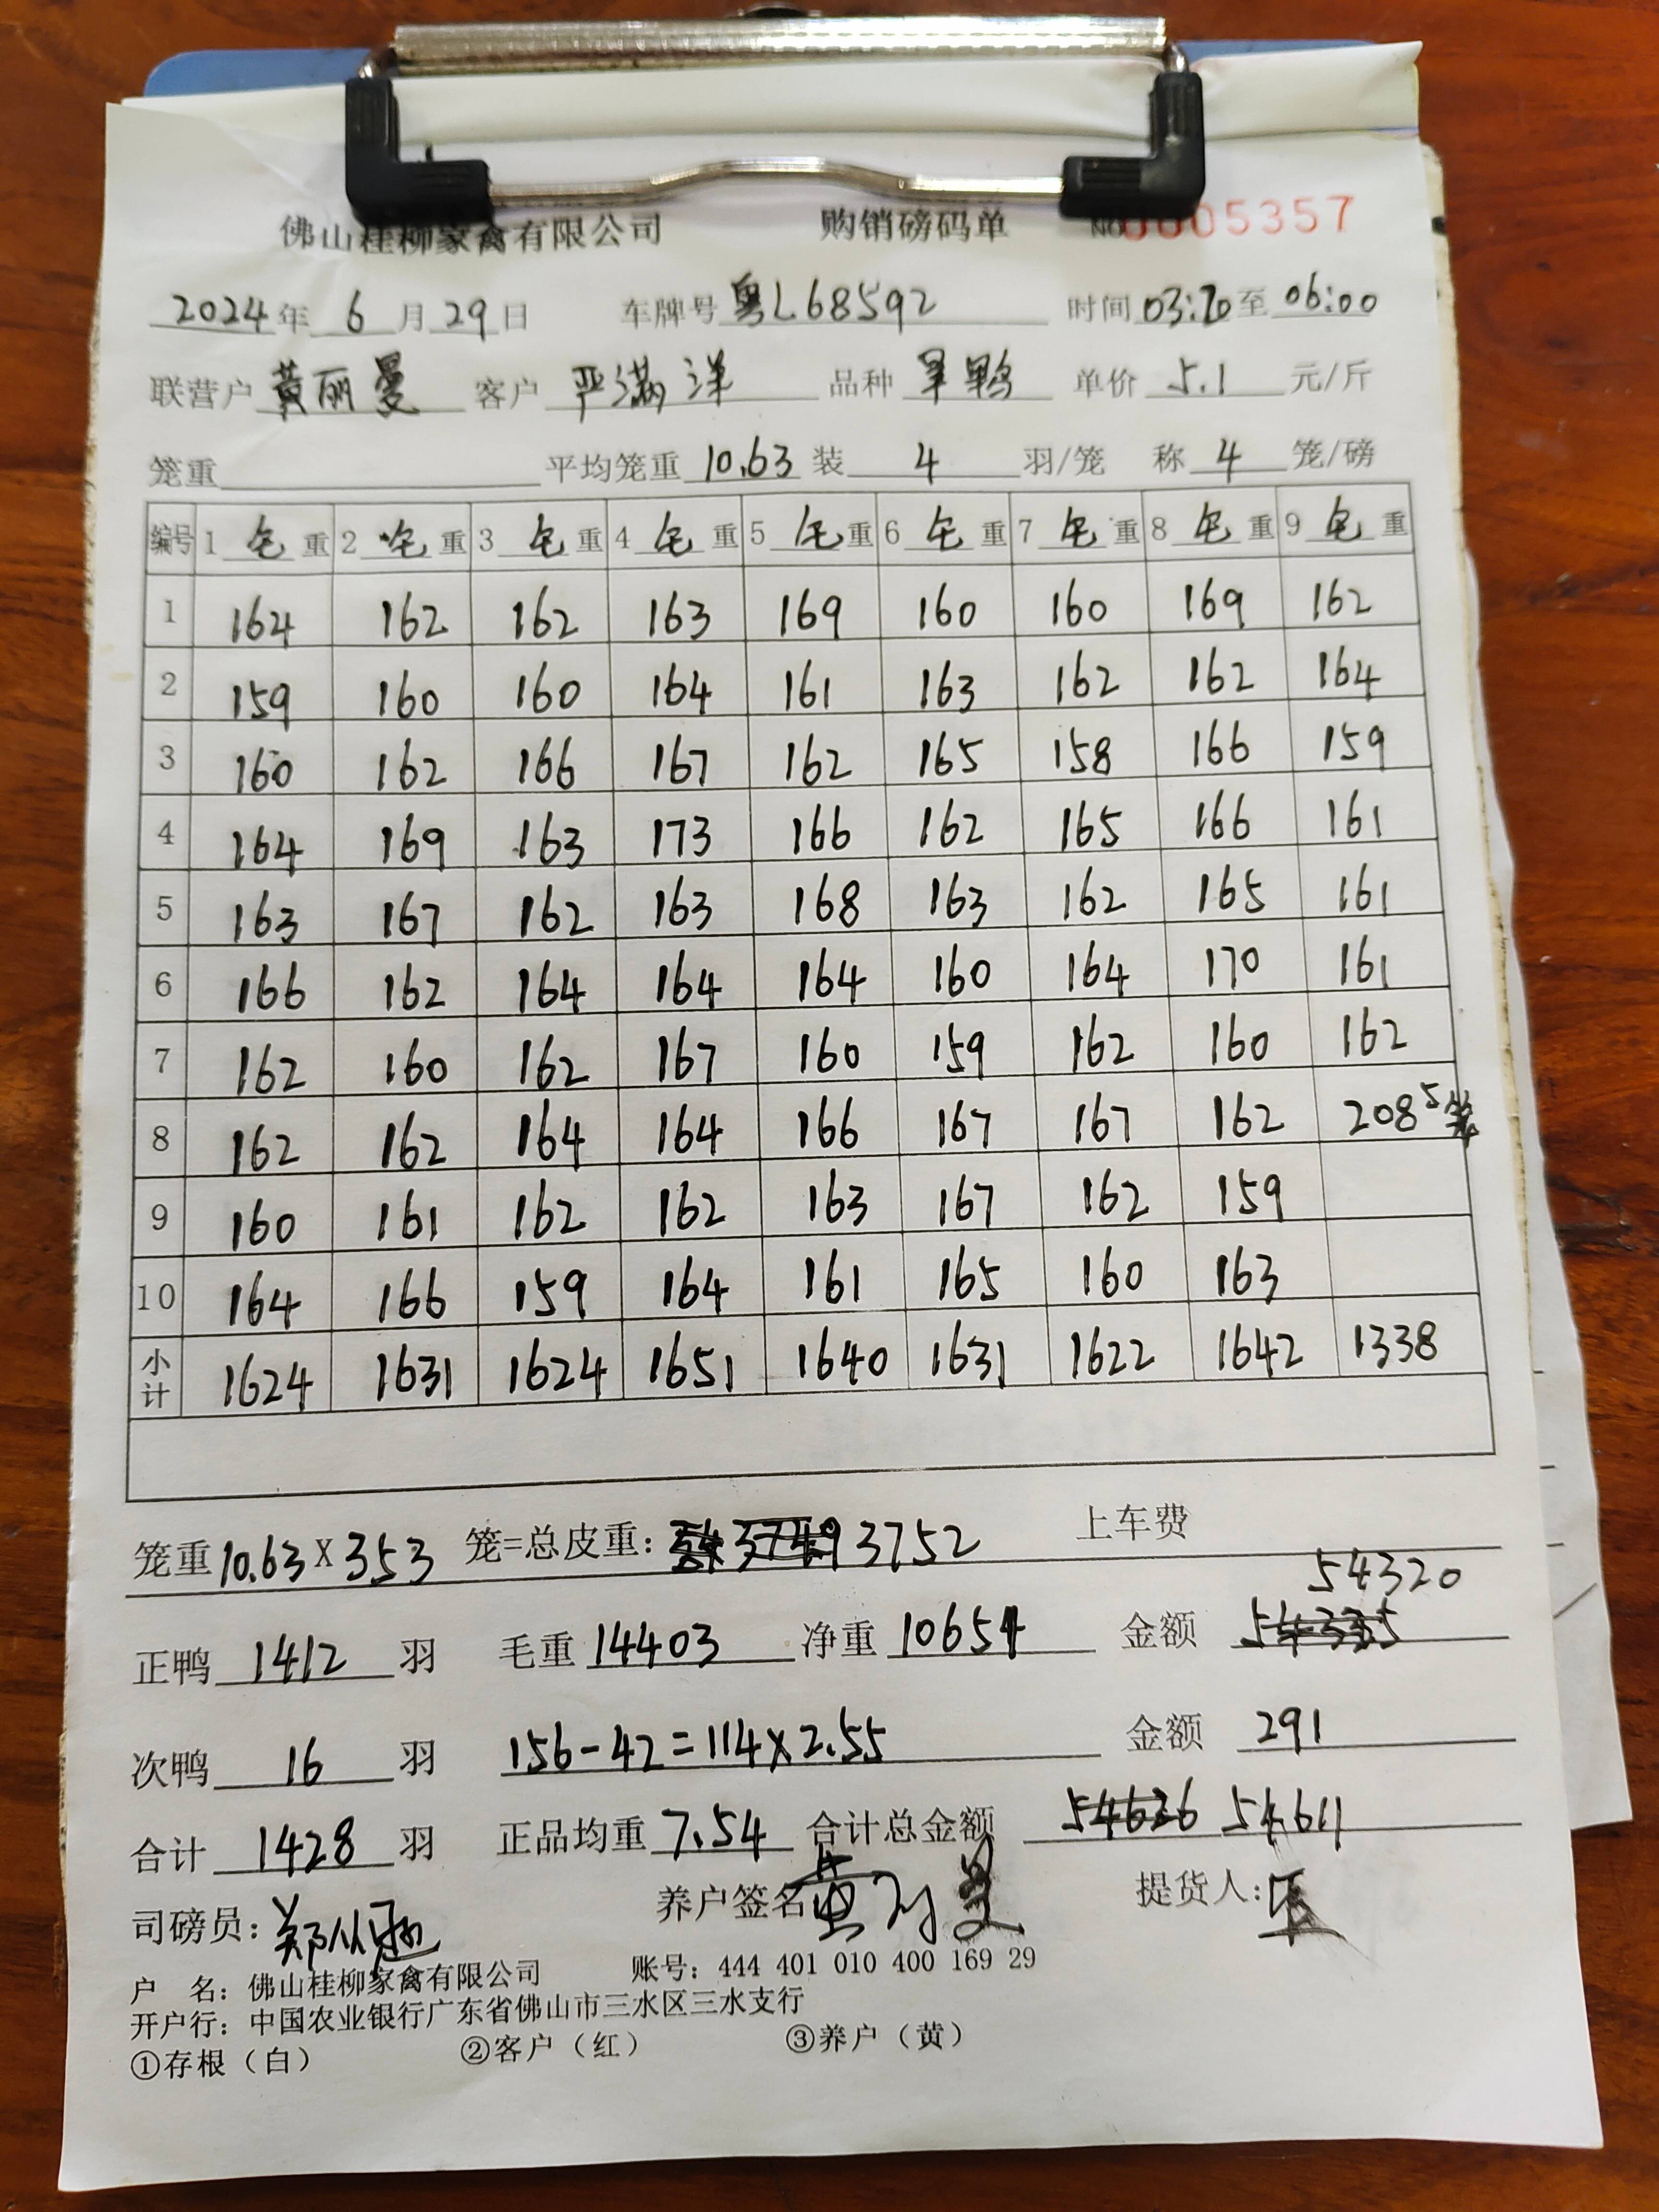 佛山桂柳家禽有限公司 购销磅码单 No 0005357
2024年 6月29日 车牌号 粤L68592 时间 03:20至 06:00
联营户 黄丽曼 客户 严满洋 品种 单价 5.1 元/斤
笼重 平均笼重 10.63 装 4 羽/笼 称 4 笼/磅
编号 1 毛重 2 毛重 3 毛重 4 毛重 5 毛重 6 毛重 7 毛重 8 毛重 9 毛重
1 164 162 162 163 169 160 160 169 162
2 159 160 160 164 161 163 162 162 164
3 160 162 166 167 162 165 158 166 159
4 164 169 163 173 166 162 165 166 161
5 163 167 162 163 168 163 162 165 161
6 166 162 164 164 164 160 164 170 161
7 162 160 162 167 160 159 162 160 162
8 162 162 164 164 166 167 167 162 208 5笼
9 160 161 162 162 163 167 162 159
10 164 166 159 164 161 165 160 163
小计 1624 1631 1624 1651 1640 1631 1622 1642 1338
笼重10.63×353 笼=总皮重: 3752 上车费
54320
正鸭 1412 羽 毛重 14403 净重 10651 金额 54335
次鸭 16 羽 156-42=114×2.55 金额 291
合计 1428 羽 正品均重 7.54 合计总金额 54626 54611
司磅员: 养户签名 黄丽曼 提货人:
户 名: 佛山桂柳家禽有限公司 账号: 444 401 010 400 169 29
开户行: 中国农业银行广东省佛山市三水区三水支行
①存根(白) ②客户(红) ③养户(黄)